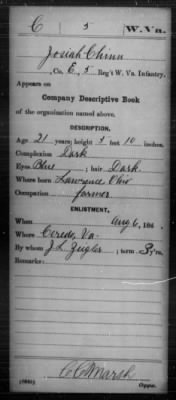 C 5 W. Va.
Josiah Chinn
Co. E, 5 Reg't W. Va. Infantry.
Appears on
Company Descriptive Book
of the organization named above.
DESCRIPTION.
Age 21 years; height 5 feet 10 inches.
Complexion Dark
Eyes Blue; hair Dark.
Where born Lawrence Ohio
Occupation farmer
ENLISTMENT.
When Aug 6, 186 .
Where Ceredo, Va.
By whom J. L. Zeigler; term 3 y'rs.
Remarks:
C C Marsh
Copyist.